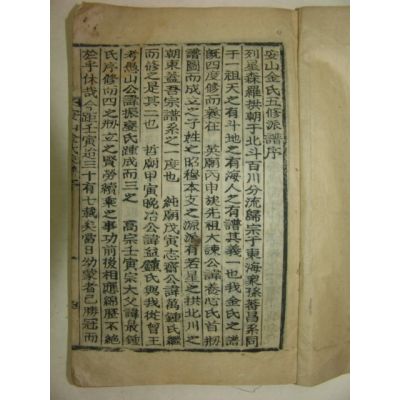 安山金氏五修派譜序
列星森羅拱朝于北斗百川分流歸宗于東海衆孫蕃昌系同
于一祖天之有斗地之有海人之有譜其義一也我金氏之譜
旣四度修而義在 英廟丙申族先祖大諫公諱卷心氏首刱
譜圖而成立之子姓之昭穆本支之源派有若星之拱北川之
朝東蓋吾宗譜系之一度也 純廟戊寅志齋公諱萬鍾氏繼
而修之是其二也 哲廟甲寅晚冶公諱益鍾氏與我從曾王
考魯山公諱振夔氏踵成而三之 高宗壬寅宗大父諱最鍾
氏序修而四之刱立之賢勞續乘之事功前後相應綿歷不絶
於乎休哉今距壬寅洽三十有七載矣當日幼蒙者已勝冠而